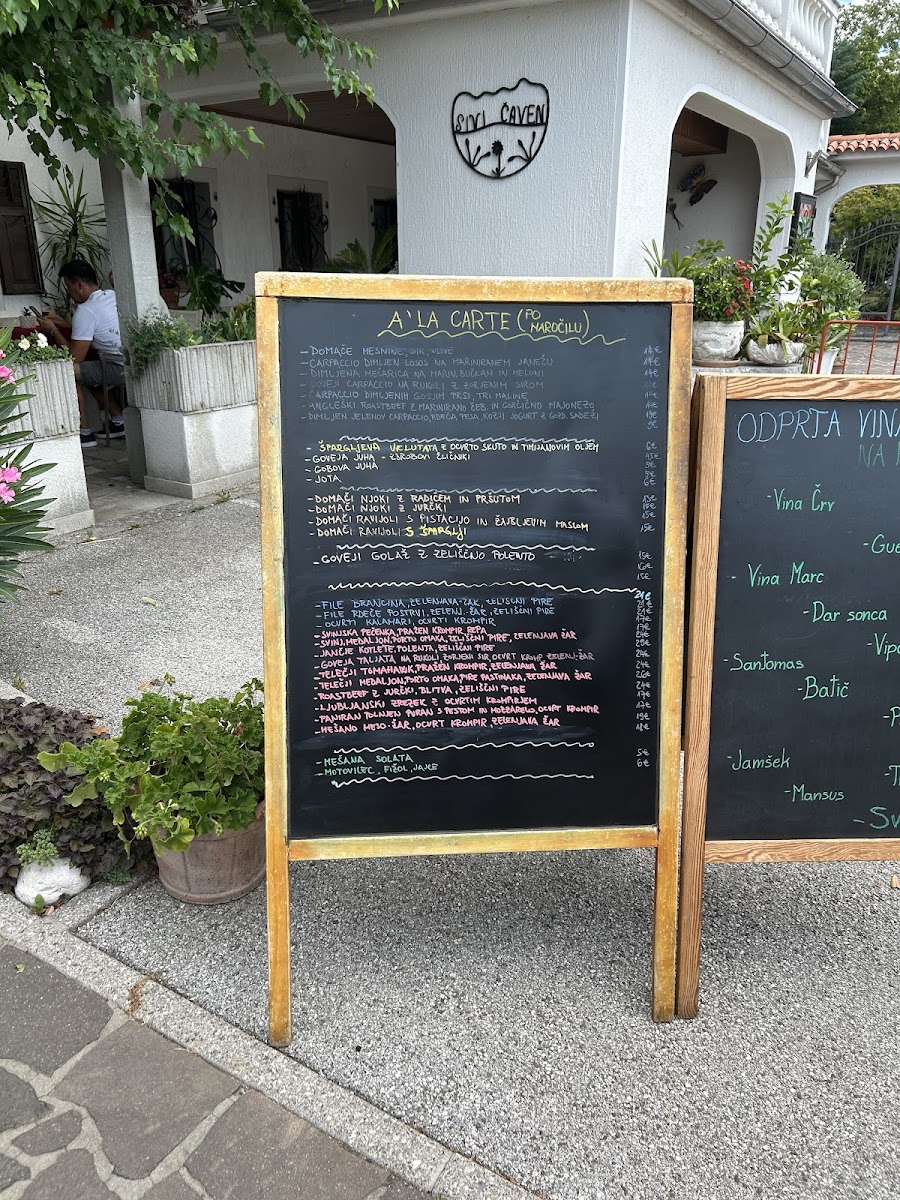 SIVI ČAVEN
A' LA CARTE (PO NAROČILU)
- DOMAČE MESNINE, SIR, OLIVE 14€
- CARPACCIO DIMLJEN LOSOS NA MARINIRANEM JANEŽU 14€
- DIMLJENA MEČARICA NA MARIN. BUČKAH IN MELONI 14€
- GOVEJI CARPACCIO NA RUKOLI Z ZORJENIM SIROM
- CARPACCIO DIMLJENIH GOSJIH PRSI, TRI MALINE
- ANGLEŠKI ROASTBEEF Z MARINIRANO ŽEB. IN GORČIČNO MAJONEZO
- DIMLJEN JELENOV CARPACCIO, RDEČA PESA, KOZJI JOGURT Z GOZD. SADEŽI
- ŠPARGLJEVA VELUTATA Z OCVRTO SKUTO IN TIMIJANOVIM OLJEM 6€
- GOVEJA JUHA - ZDROBOVI ŽLIČNIKI
- GOBOVA JUHA
- JOTA 6€
- DOMAČI NJOKI Z RADIČEM IN PRŠUTOM
- DOMAČI NJOKI Z JURČKI
- DOMAČI RAVIJOLI S PISTACIJO IN ŽAJBLJEVIM MASLOM
- DOMAČI RAVIJOLI S ŠPARGLJI 15€
- GOVEJI GOLAŽ Z ZELIŠČNO POLENTO 15€
16€
15€
21€
- FILE BRANCINA, ZELENJAVA-ŽAR, ZELIŠČNI PIRE
- FILE RDEČE POSTRVI, ZELENJ. ŽAR, ZELIŠČNI PIRE
- OCVRTI KALAMARI, OCVRTI KROMPIR
- SVINJSKA PEČENKA, PRAŽEN KROMPIR, REPA
- SVINJ. MEDALJON, PORTO OMAKA, ZELIŠČNI PIRE, ZELENJAVA ŽAR
- JANČJE KOTLETE, POLENTA, ZELIŠČNI PIRE
- GOVEJA TALJATA NA RUKOLI ZORJENI SIR OCVRT KROMP. ZELENJ-ŽAR
- TELEČJI TOMAHAWK, PRAŽEN KROMPIR, ZELENJAVA ŽAR 24€
- TELEČJI MEDALJON, PORTO OMAKA, PIRE PASTINAKA, ZELENJAVA ŽAR 26€
- ROASTBEEF Z JURČKI, BLITVA, ZELIŠČNI PIRE 24€
- LJUBLJANSKI ZREZEK Z OCVRTIM KROMPIRJEM 17€
- PANIRAN POLNJEN PURAN S PESTOM IN MOZZARELO, OCVRT KROMPIR 17€
- MEŠANO MESO-ŽAR, OCVRT KROMPIR, ZELENJAVA ŽAR 19€
18€
- MEŠANA SOLATA 5€
- MOTOVILEC, FIŽOL, JAJCE 6€
ODPRTA VINA
NA
- Vina Črv
- Gue
- Vina Marc
- Dar sonca
- Vipa
- Santomas
- Batič
- Jamšek
- Mansus
- Sv